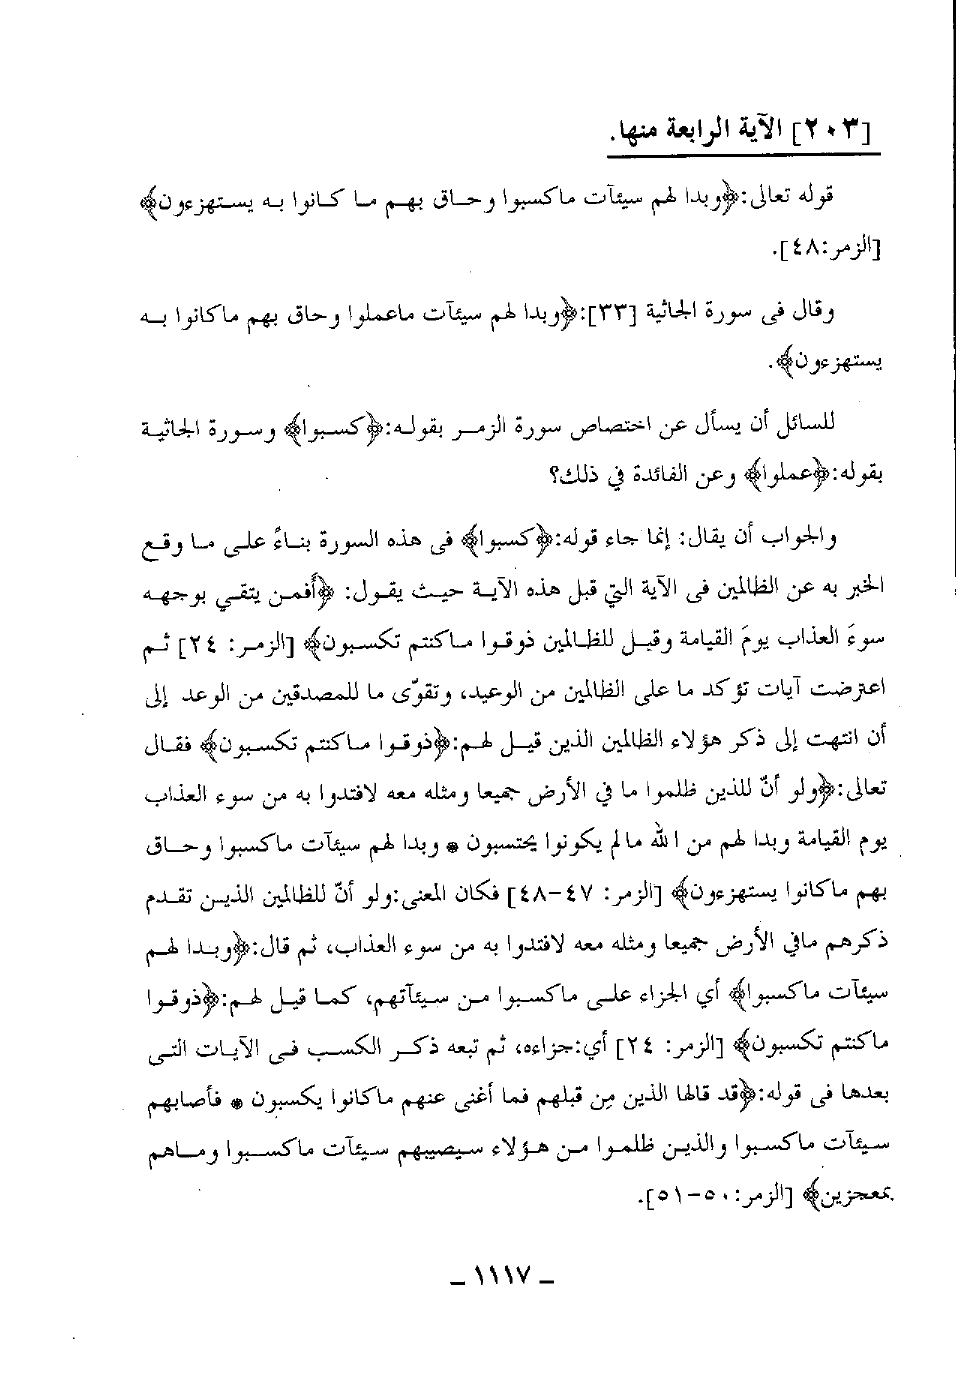 [٢٠٣] الآية الرابعة منها.
قوله تعالى:﴿وبدا لهم سيئآت ماكسبوا وحاق بهم ما كانوا به يستهزءون﴾
[الزمر:٤٨].
وقال فى سورة الجاثية [٣٣]:﴿وبدا لهم سيئآت ماعملوا وحاق بهم ماكانوا به
يستهزءون﴾.
للسائل أن يسأل عن اختصاص سورة الزمر بقوله:﴿كسبوا﴾ وسورة الجاثية
بقوله:﴿عملوا﴾ وعن الفائدة في ذلك؟
والجواب أن يقال: إنما جاء قوله:﴿كسبوا﴾ فى هذه السورة بناءً على ما وقع
الخبر به عن الظالمين فى الآية التي قبل هذه الآية حيث يقول: ﴿أفمن يتقي بوجهه
سوءَ العذاب يومَ القيامة وقيل للظالمين ذوقوا ماكنتم تكسبون﴾ [الزمر: ٢٤] ثم
اعترضت آيات تؤكد ما على الظالمين من الوعيد، وتقوّى ما للمصدقين من الوعد إلى
أن انتهت إلى ذكر هؤلاء الظالمين الذين قيل لهم:﴿ذوقوا ماكنتم تكسبون﴾ فقال
تعالى:﴿ولو أنّ للذين ظلموا ما في الأرض جميعا ومثله معه لافتدوا به من سوء العذاب
يوم القيامة وبدا لهم من الله مالم يكونوا يحتسبون * وبدا لهم سيئآت ماكسبوا وحاق
بهم ماكانوا يستهزءون﴾ [الزمر: ٤٧-٤٨] فكان المعنى:ولو أنّ للظالمين الذين تقدم
ذكرهم مافي الأرض جميعا ومثله معه لافتدوا به من سوء العذاب، ثم قال:﴿وبدا لهم
سيئآت ماكسبوا﴾ أي الجزاء على ماكسبوا من سيئآتهم، كما قيل لهم:﴿ذوقوا
ماكنتم تكسبون﴾ [الزمر: ٢٤] أي:جزاءه، ثم تبعه ذكر الكسب فى الآيات التى
بعدها فى قوله:﴿قد قالها الذين مِن قبلهم فما أغنى عنهم ماكانوا يكسبون * فأصابهم
سيئآت ماكسبوا والذين ظلموا من هؤلاء سيصيبهم سيئآت ماكسبوا وماهم
بمعجزين﴾ [الزمر:٥٠-٥١].
ـ ١١١٧ ـ